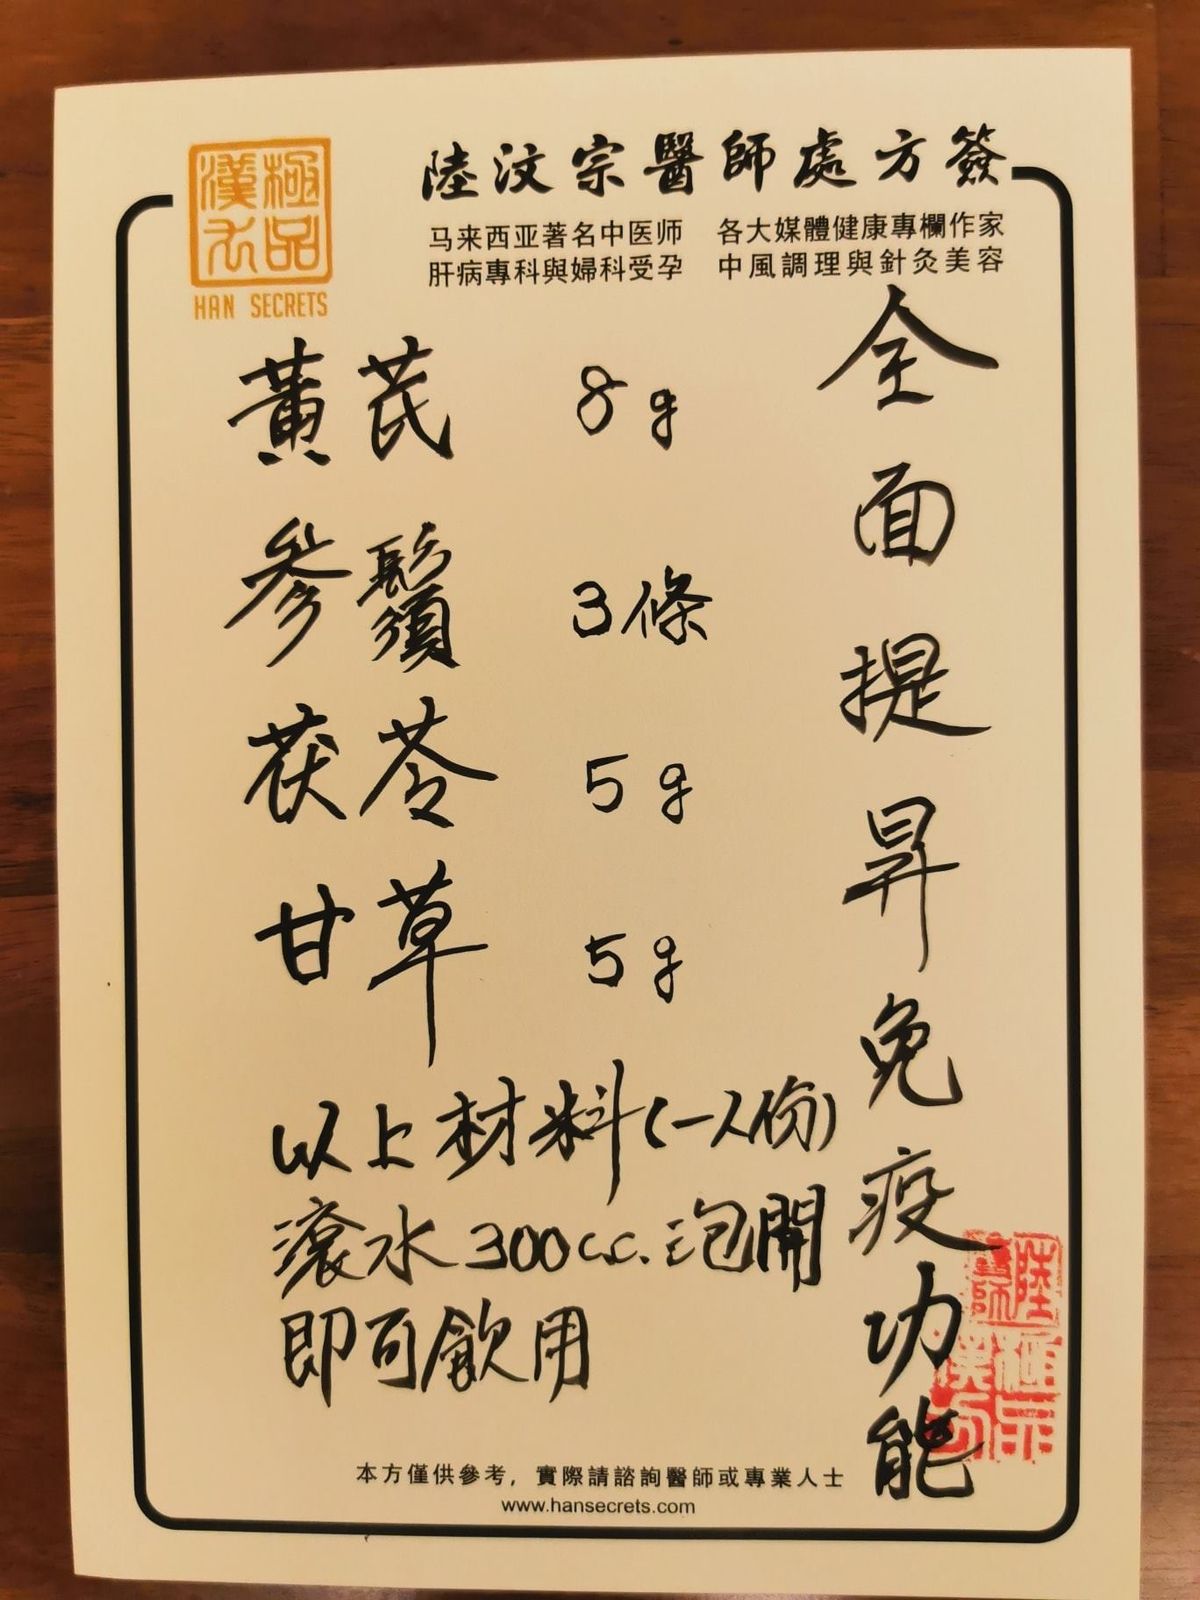 極品
漢方
HAN SECRETS
陸汶宗醫師處方簽
马来西亚著名中医师 各大媒體健康專欄作家
肝病專科與婦科受孕 中風調理與針灸美容
全面提昇免疫功能
黃芪 8g
參鬚 3條
茯苓 5g
甘草 5g
以上材料(一人份)
滾水300c.c.泡開
即可飲用
陸醫師
極品漢方
本方僅供參考，實際請諮詢醫師或專業人士
www.hansecrets.com